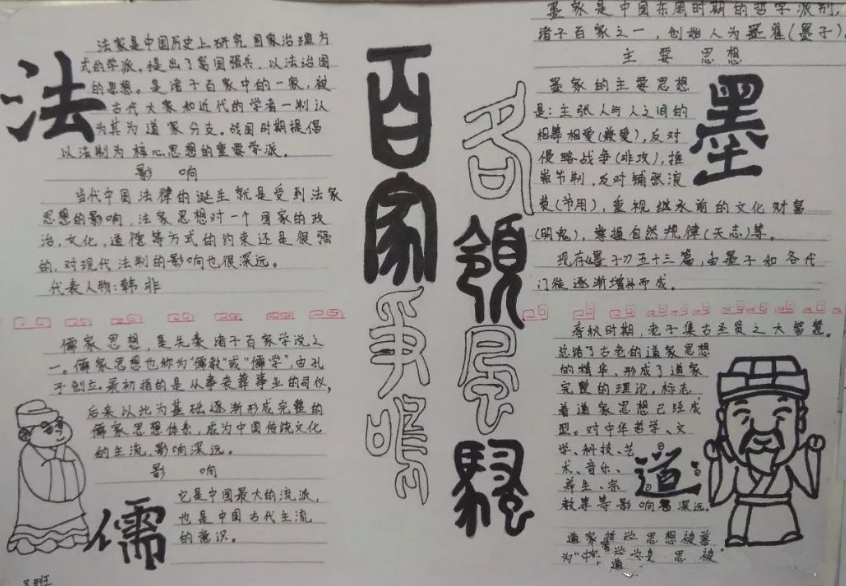 法
法家是中国历史上研究国家治理方
式的学派。提出了富国强兵、以法治国
的思想。是诸子百家中的一家,被
古代大家和近代的学者一制认
为其为道家分支。战国时期提倡
以法制为核心思想的重要学派。
影响
当代中国法律的诞生就是受到法家
思想的影响,法家思想对一个国家的政
治,文化,道德等方式的约束还是很强
的,对现代法制的影响也很深远。
代表人物:韩非
儒家思想,是先秦诸子百家学说之
一。儒家思想也称为“儒教”或“儒学”,由孔
子创立。最初指的是从事丧葬事业的司仪,
后来以此为基础逐渐形成完整的
儒家思想体系,成为中国传统文化
的主流,影响深远。
影响
它是中国最大的流派,
也是中国古代主流
的意识。
儒
百家争鸣
各领风骚
墨家是中国东周时期的哲学派别,
诸子百家之一,创始人为墨翟(墨子)。
主要思想
墨
墨家的主要思想
是:主张人与人之间的
相等相爱(兼爱),反对
侵略战争(非攻),推
崇节制,反对铺张浪
费(节用),重视继承前的文化财富
(明鬼),掌握自然规律(天志)等。
现存《墨子》五十三篇,由墨子和各代
门徒逐渐增补而成。
春秋时期,老子集古圣贤之大智慧。
总结了古老的道家思想
的精华,形成了道家
完整的理论,标志
着道家思想已经成
型。对中华哲学、文
学、科技、艺
术、音乐、
养生、宗
教等等影响深远。
道
道家哲学思想被
为“中
班